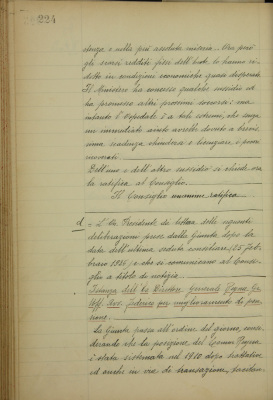 224
denza e nella più assoluta miseria. Ora poi
gli scarsi redditi fissi dell'Ente lo hanno ri-
dotto in condizioni economiche quasi disperate
Il Ministero ha concesso qualche sussidio ed
ha promesso altri prossimi soccorsi: ma
intanto l'Ospedale è a tali estremi, che senza
un immediato aiuto dovrebbe
chiudere i poveri
ricoverati.
Dell'uno e dell'altro sussidio si chiede ora
la ratifica al Consiglio.
Il Consiglio unanime ratifica.
d) - L'On. Presidente dà lettura delle seguenti
deliberazioni prese dalla Giunta dopo la
data dell'ultima seduta consiliare, 25 feb-
braio 1924, e che si comunicano al Consi-
glio a titolo di notizia.
Istanza dell'ex Direttore Generale
Uff. Avv. Federico per miglioramento di pen-
sione.
La Giunta passa all'ordine del giorno, consi-
derando che la posizione del Comm.
è stata sistemata nel 1920 dopo trattative
ed anche in via di transazione, facendo